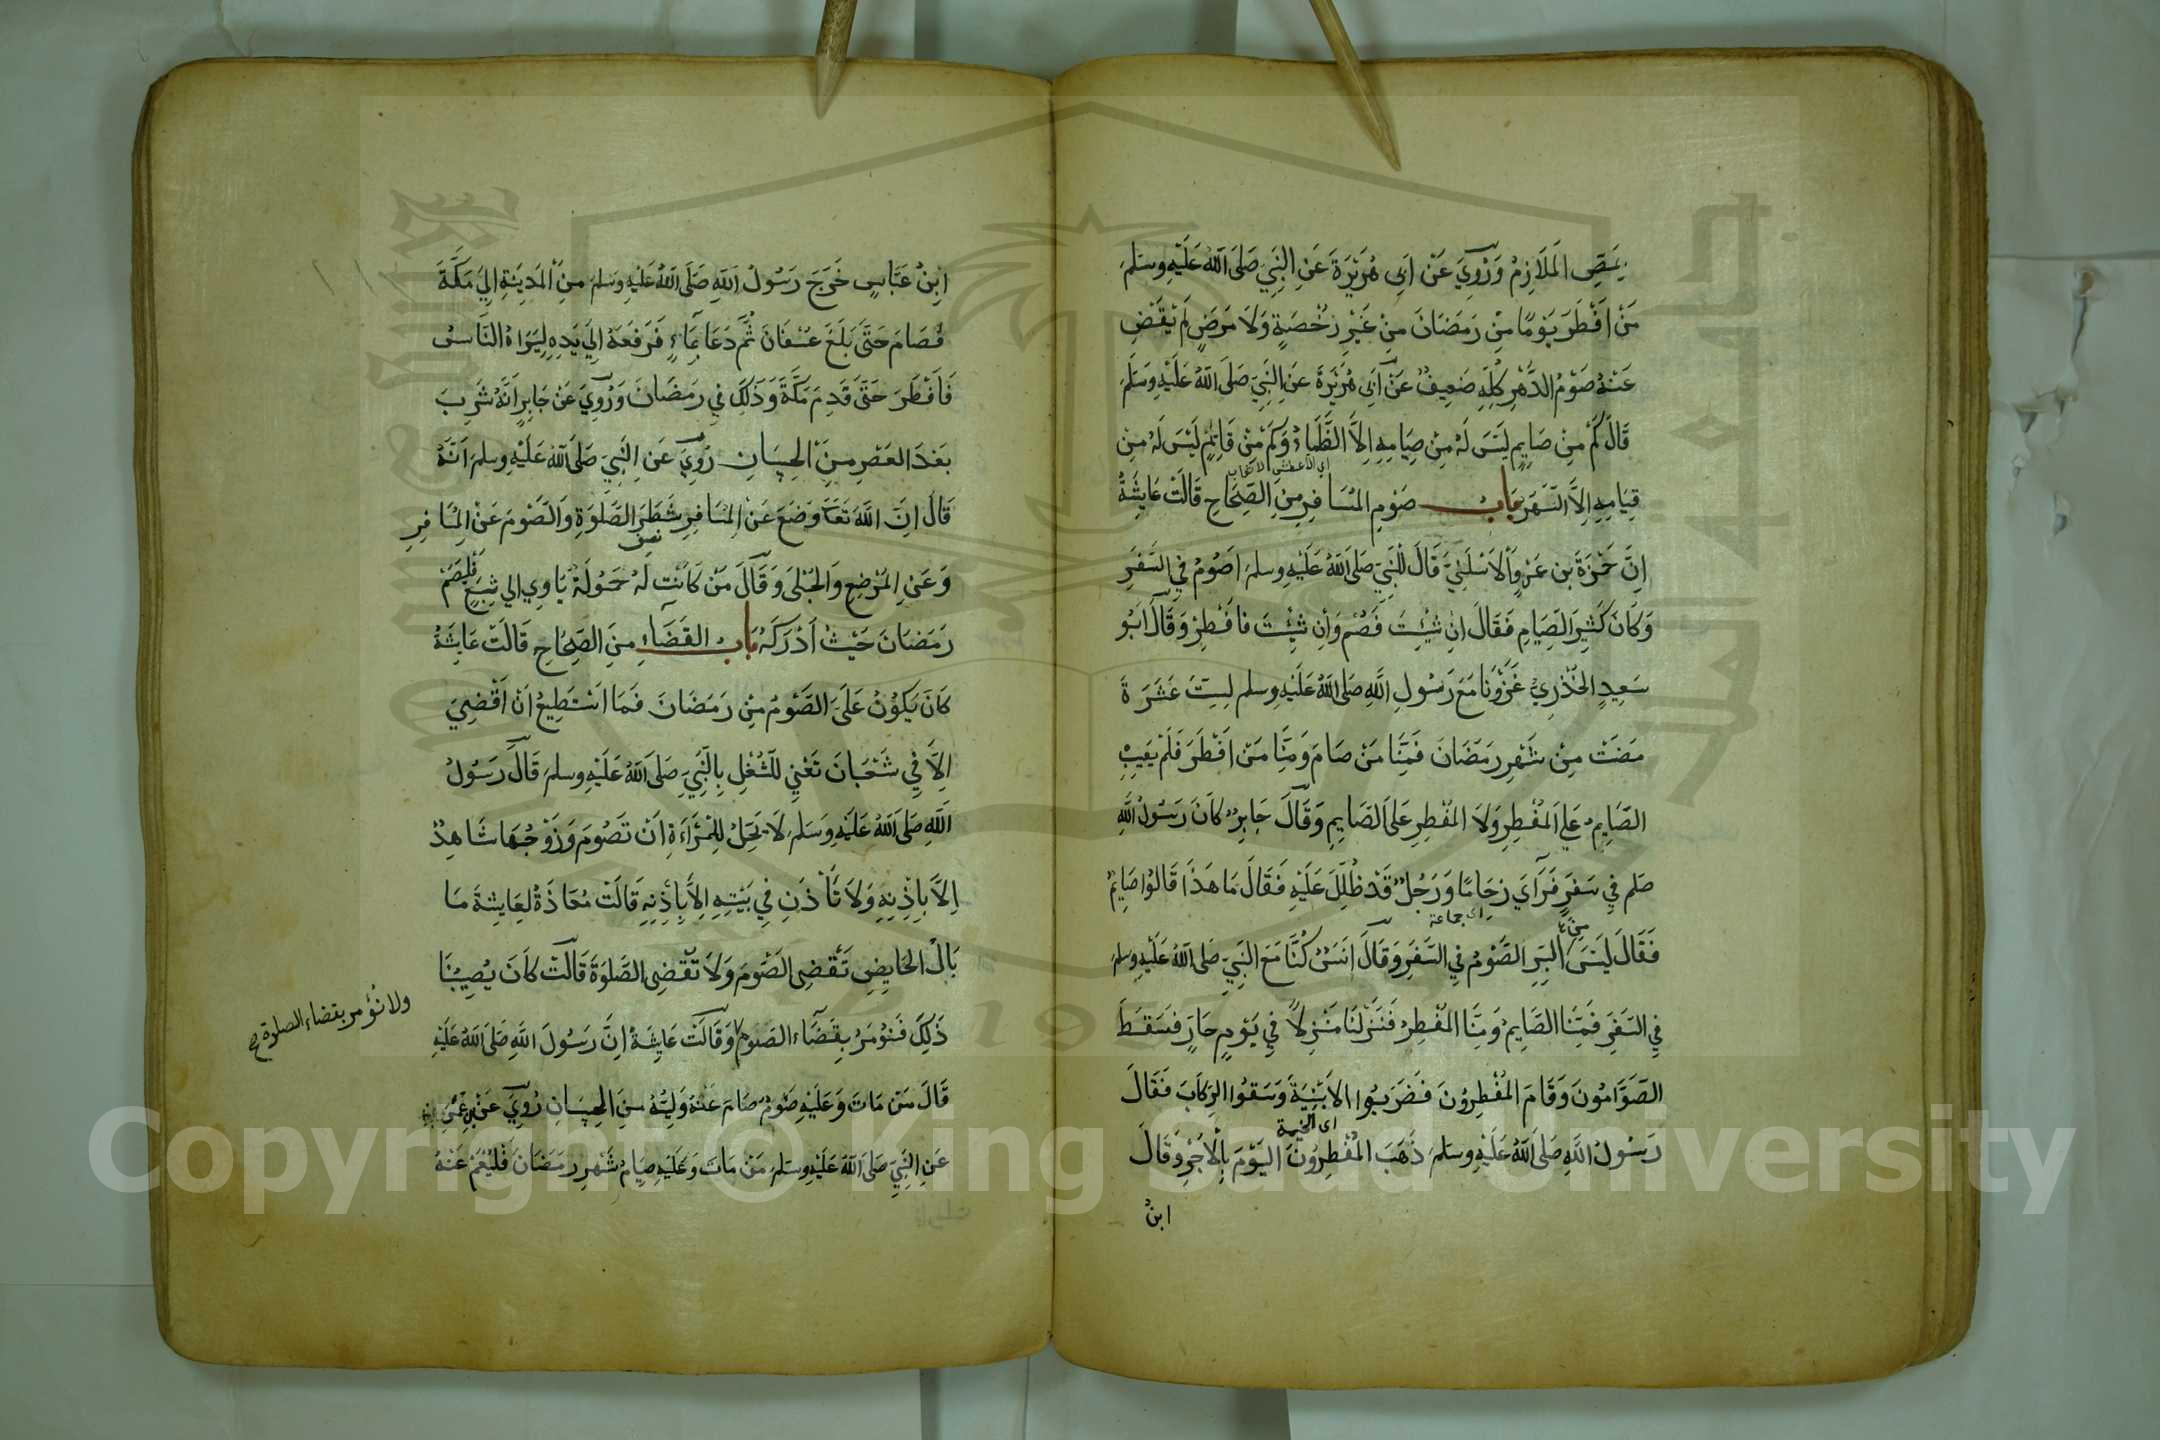 يَمُصِّ المَلَازِمُ وَرُوِيَ عَنْ اَبِي هُرَيْرَةَ عَنِ النَّبِيِّ صَلَى اللّٰهُ عَلَيْهِ وسَلمَ
مَنْ اَفْطَرَ يَوْمًا مِنْ رَمَضَانَ مِنْ غَيْرِ رُخْصَةٍ وَلَا مَرَضٍ لَمْ يَقْضِ
عَنْهُ صَوْمُ الدَّهْرِ كُلِّهِ ضَعِيفٌ عَنْ اَبِي هُرَيْرَةَ عَنِ النَّبِيِّ صَلَى اللّٰهُ عَلَيْهِ وَسَلَمَ
قَالَ كَمْ مِنْ صَايِمٍ لَيْسَ لَهُ مِنْ صِيَامِهِ اِلَّا الظَّمَاءُ وَكَمْ مِنْ قَايِمٍ لَيْسَ لَهُ مِنْ
اى الاعطش
قِيَامِهِ اِلَّا السَّهَرَ بَابُ صَوْمِ المُسَافِرِ مِنَ الصِّحَاحِ قَالَتْ عَايِشَةُ
اِنَّ حَمْزَةَ بن عَمْروٍ الْاَسْلَمِيَّ قَالَ لِلنَّبِيِّ صَلَى اللّٰهُ عَلَيْهِ وسلمَ اَصُوْمُ فِي السَّفَرِ
وَكَانَ كَثِيرَ الصِّيَامِ فَقَالَ اِنْ شِيْتَ فَصُمْ وَاِنْ شِيْتَ فَافْطِرْ وَقَالَ اَبُو
سَعِيدٍ الخُدْرِيُّ غَزَوْنَا مَعَ رَسُولِ اللَّهِ صَلى اللّٰهُ عَلَيْهِ وسلم لِسِتَّ عَشَرَةَ
مَضَتْ مِنْ شَهْرِ رَمَضَانَ فَمِنَّا مَنْ صَامَ وَمِنَّا مَنْ اَفْطَرَ فَلَمْ يَعِبِ
الصَّايِمُ عَلَى المُفْطِرِ وَلَا المُفْطِرِ عَلَى الصَّايِمِ وَقَالَ جَابِرٌ كَانَ رَسُولُ اللَّهِ
صلم فِي سَفَرٍ فَرَآىَ زِحَامًا وَرَجُلٌ قَدْ ظُلِّلَ عَلَيْهِ فَقَالَ مَا هَذَا قَالُوا صَايِمٌ
اى جماعة
من
فَقَالَ لَيْسَ البِرِّ الصَّوْمُ فِي السَّفَرِ وَقَالَ اَنَسٌ كُنَّا مَعَ النَّبِيِّ صَلى اللّٰهُ عَلَيْهِ وسلم
فِي السَّفَرِ فَمِنَّا الصَّايِمُ وَمِنَّا المُفْطِرُ فَنَزَلْنَا مَنْزِلًا فِي يَوْمٍ حَارٍّ فَسَقَطَ
الصَّوَّامُونَ وَقَامَ المُفْطِرُونَ فَضَرَبُوا الاَبْنِيَةَ وَسَقَوُا الرِّكَابَ فَقَالَ
اى الخيمة
رَسُوْلُ اللَّهِ صَلَى اللّٰهُ عَلَيْهِ وسلمَ ذَهَبَ المُفْطِرُونَ اليَوْمَ بِالْاَجْرِ وَقَالَ
ابنُ
ابنُ عَبَّاسٍ خَرَجَ رَسُولُ اللّٰهِ صَلَى اللّٰهُ عَلَيْهِ وسلمَ مِنَ الْمَدِيْنَةِ اِلَى مَكَّةَ
فَصَامَ حَتَّى بَلَغَ عُسْفَانَ ثُمَّ دَعَا بِمَاءٍ فَرَفَعَهُ اِلَى يَدِهِ لِيَرَاهُ النَّاسُ
فَاَفْطَرَ حَتَّى قَدِمَ مَكَّةَ وَذَلِكَ فِي رَمَضَانَ وَرُوِيَ عَنْ جَابِرٍ اَنَّهُ شَرِبَ
بَعْدَ العَصْرِ مِنَ الحِسَانِ رُوِيَ عَنِ النَّبِيِّ صَلَى اللّٰهُ عَلَيْهِ وسلمَ اَنَّهُ
قَالَ اِنَّ اللَّهَ تَعَالَى وَضَعَ عَنِ المُسَافِرِ شَطْرَ الصَّلٰوةِ وَالصَّوْمَ عَنِ المُسَافِرِ
نصف
وَعَنِ المُرْضِعِ وَالحُبْلَى وَقَالَ مَنْ كَانَتْ لَهُ حَمُولَةٌ يَاوِي الى شِبَعٍ فَلْيَصُمْ
رَمَضَانَ حَيْثُ اَدْرَكَهُ بَابُ القَضَاءِ مِنَ الصِّحَاحِ قَالَتْ عَايِشَةُ
كَانَ يَكُوْنُ عَلَيَّ الصَّوْمُ مِنْ رَمَضَانَ فَمَا اَسْتَطِيعُ اَنْ اَقْضِيَ
اِلَّا فِي شَعْبَانَ تَعْنِي لِلشُّغْلِ بِالنَّبِيِّ صَلَى اللّٰهُ عَلَيْهِ وسلمَ قَالَ رَسُولُ
اللّٰهِ صَلَى اللّٰهُ عَلَيْهِ وَسَلمَ لَا يَحِلُّ لِلْمَرْاَةِ اَنْ تَصُوْمَ وَزَوْجُهَا شَاهِدٌ
اِلَّا بِاِذْنِهِ وَلَا تَاْذَنِ فِي بَيْتِهِ اِلَّا بِاِذْنِهِ قَالَتْ مُعَاذَةُ لِعَايشةَ مَا
بَالُ الحَايِضِ تَقْضِي الصَّوْمَ وَلَا تَقْضِي الصَّلوٰةَ قَالَتْ كَانَ يُصِيْبُنَا
ذَلِكَ فَنُوْمَرُ بِقَضَاءِ الصَّوْمِ وَقَالَتْ عَايِشَةُ اِنَّ رَسُولَ اللَّهِ صَلى اللّٰهُ عَلَيْهِ
ولا نؤمر بقضاء الصلوة صح
قَالَ مَنْ مَاتَ وَعَلَيْهِ صَوْمٌ صَامَ عَنْهُ وَلِيُّهُ مِنَ الحِسَانِ رُوِيَ عَنْ
عَنِ النَّبِيِّ صَلَى اللّٰهُ عَلَيْهِ وسلمَ مَنْ مَاتَ وَعَلَيْهِ صِيَامُ شَهْرِ رَمَضَانَ فَلْيُطْعَمْ عَنْهُ
Copyright © King Saud University